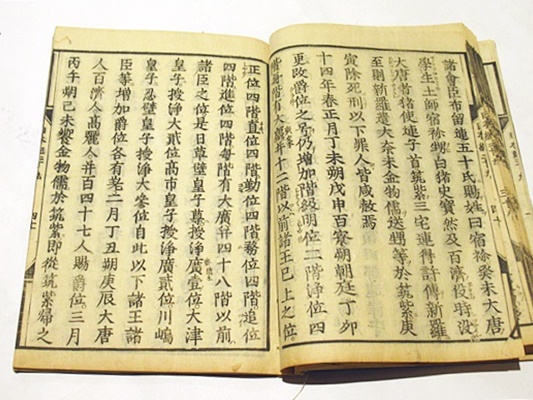 諸會臣布留連五十氏賜姓曰宿祢癸未大唐
學生土師宿祢甥白猪史寳然及百濟役時没
大唐者猪使連子首筑紫三宅連得許傳新羅
至則新羅遣大奈末金物儒送甥等於筑紫庚
寅除死刑以下罪人皆咸赦焉
十四年春正月丁未朔戊申百寮朝庭丁卯
更改爵位之号仍増加階級明位二階淨位四
階每階有大廣并十二階以前諸王已上之位
正位四階直位四階勤位四階務位四階追位
四階進位四階每階有大廣并四十八階以前
諸臣之位是日草壁皇子尊授淨廣壹位大津
皇子授淨大貳位高市皇子授淨廣貳位川嶋
皇子忍壁皇子授淨大參位自此以下諸王諸
臣等増加爵位各有差二月丁丑朔庚辰大唐
人百濟人高麗人并百四十七人賜爵位三月
丙午朔己未饗金物儒於筑紫即從筑紫歸之